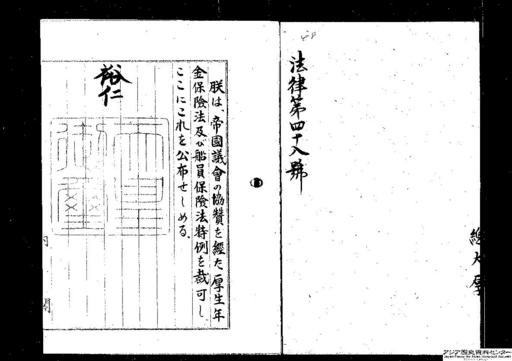 法律第四十八號
朕は、帝國議會の協賛を經た厚生年
金保險法及び船員保險法特例を裁可し、
ここにこれを公布せしめる。
裕仁
内閣
アジア歴史資料センター